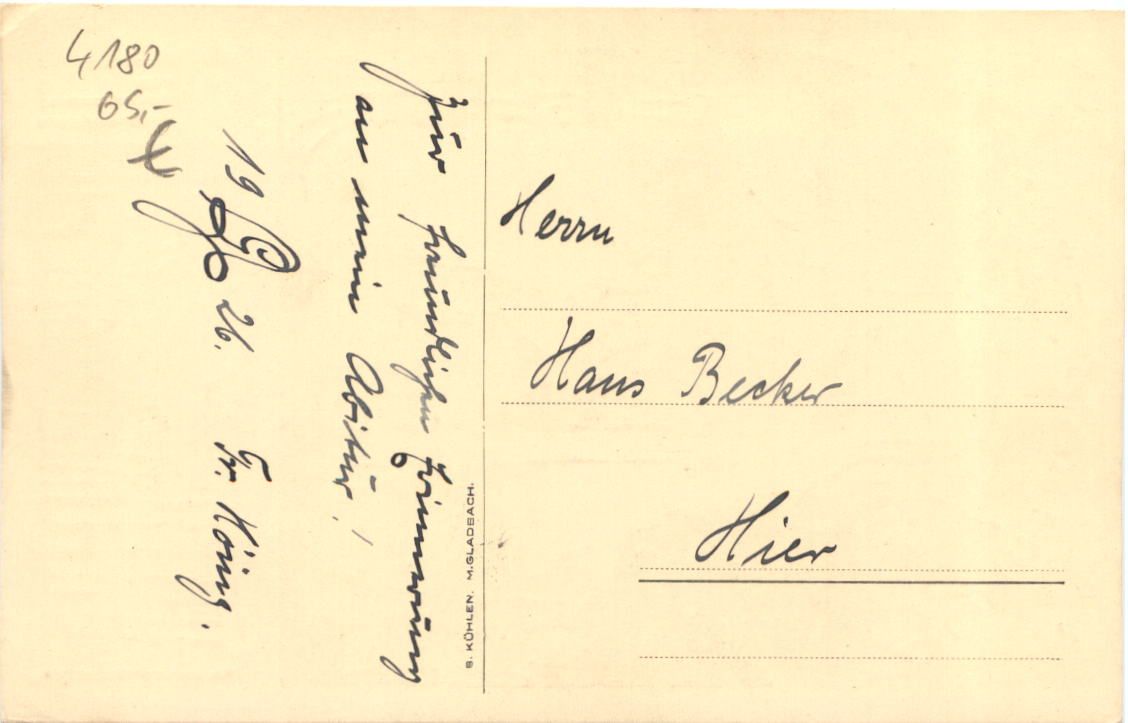 4180
65,-
Zur freundlichen Erinnerung
an mein Abitur!
19 26.
Fr. König.
B. KÜHLEN. M.GLADBACH.
Herrn
Hans Becker
Hier